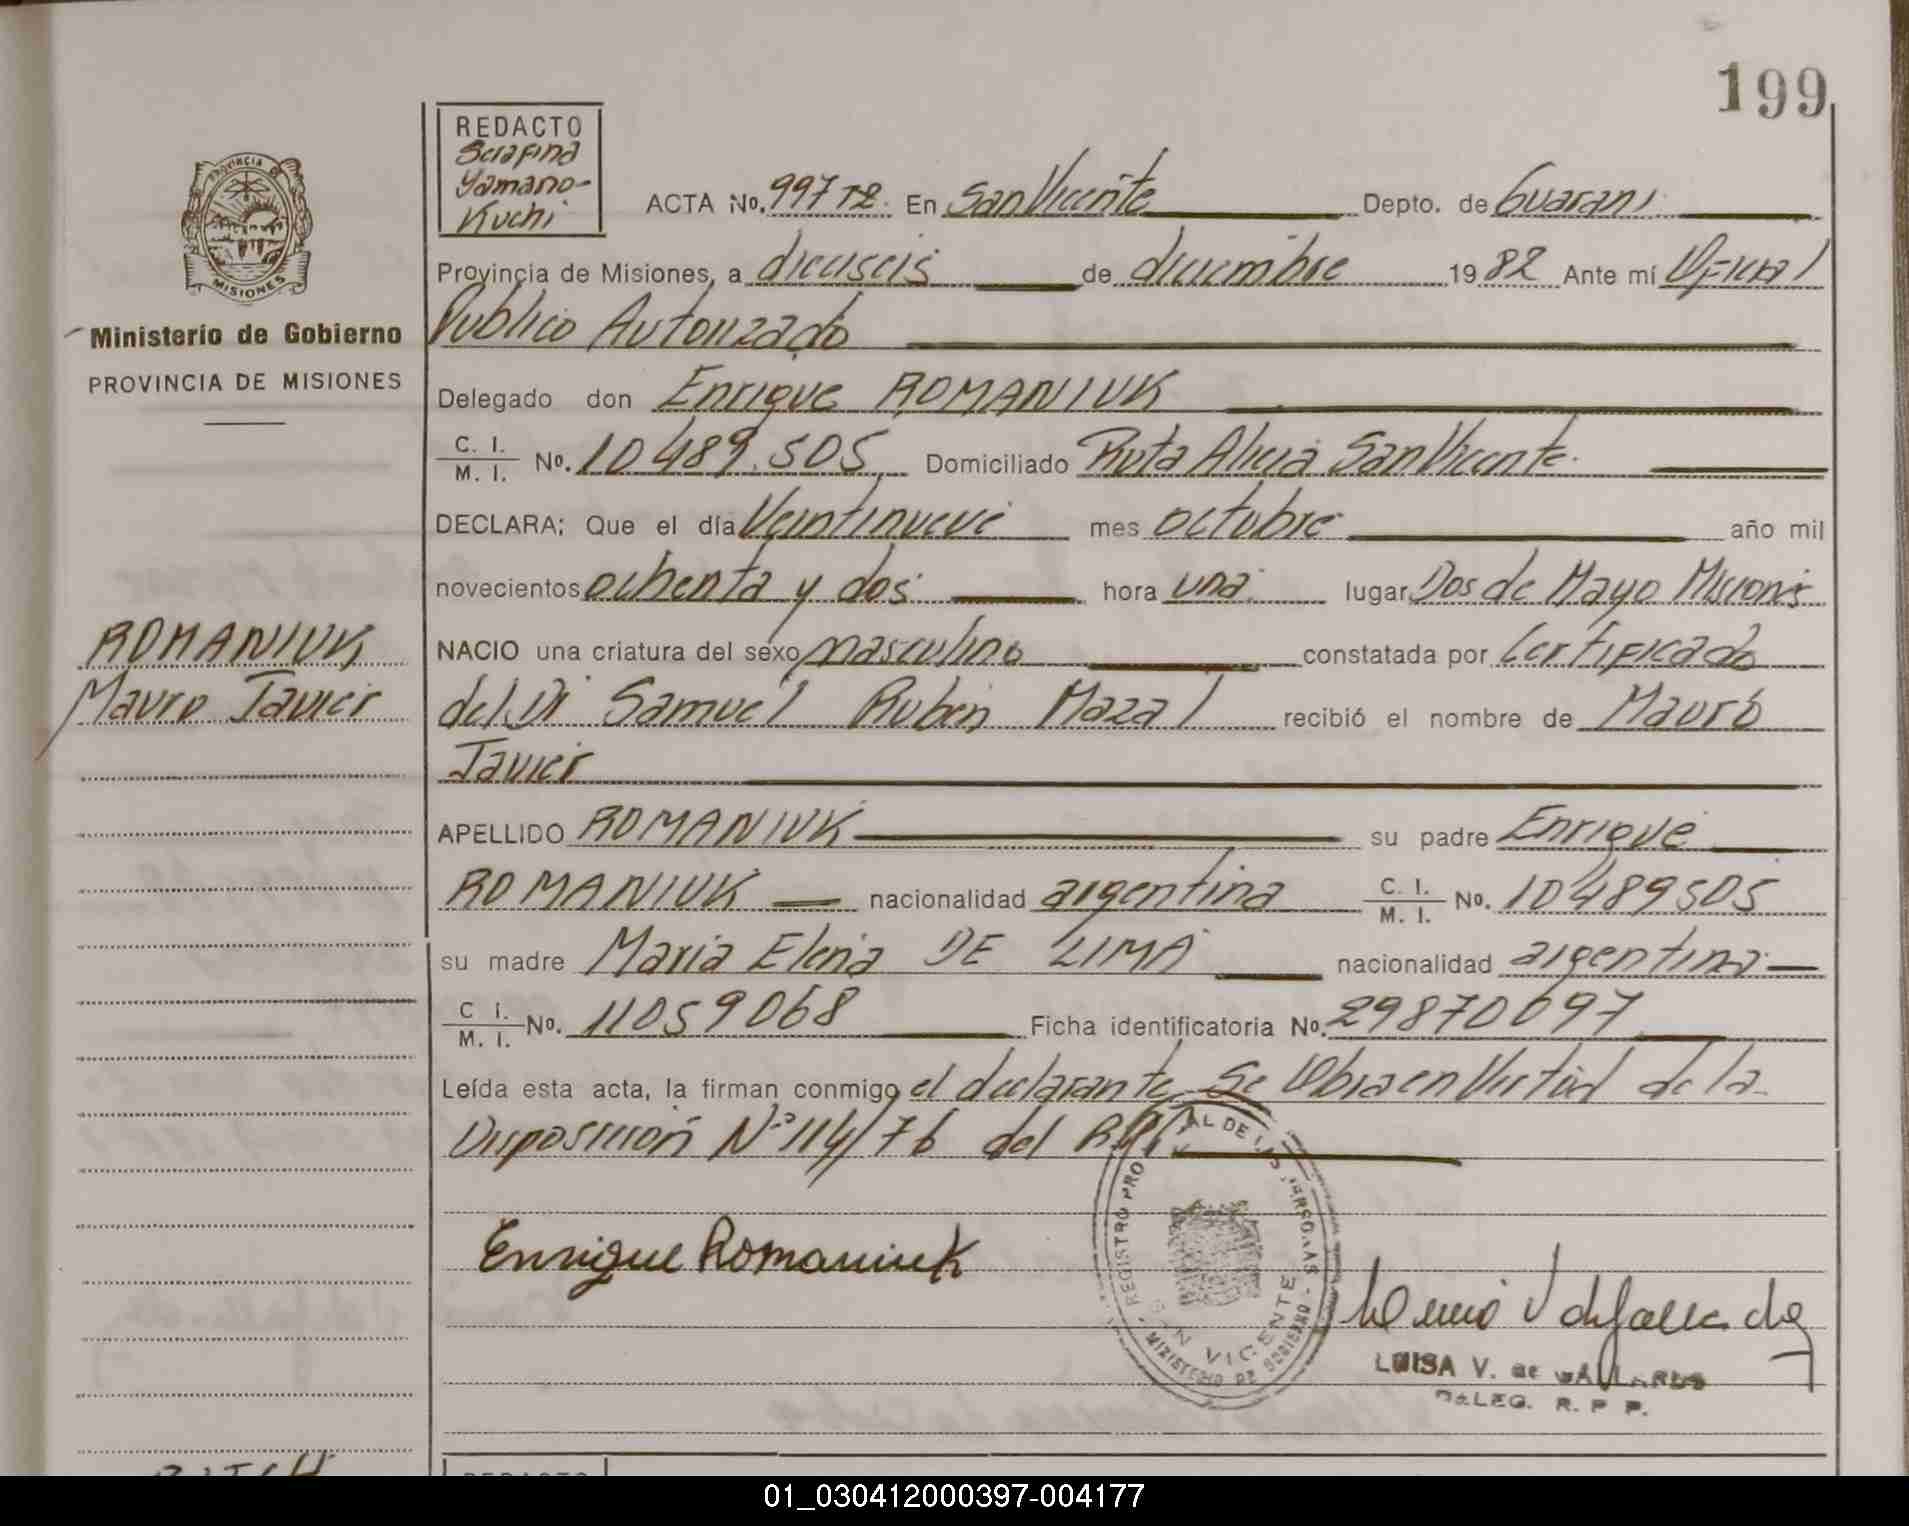 199
REDACTO
Serafina
Yamano-
Kuchi
ACTA No. 997 T2. En San Vicente Depto. de Guarani
PROVINCIA DE MISIONES
Provincia de Misiones, a dieciseis de diciembre 1982 Ante mí Oficial
Ministerio de Gobierno
Publico Autorizado
PROVINCIA DE MISIONES
Delegado don Enrique ROMANIUK
C. I. / M. I. No. 10489.505 Domiciliado Ruta Alicia San Vicente.
DECLARA: Que el día Veintinueve mes octubre año mil
novecientos ochenta y dos hora una lugar Dos de Mayo Misiones
ROMANIUK
NACIO una criatura del sexo masculino constatada por Certificado
Mauro Javier
del Dr Samuel Ruben Mazal recibió el nombre de Mauro
Javier
APELLIDO ROMANIUK su padre Enrique
ROMANIUK nacionalidad argentina C. I. / M. I. No. 10489505
su madre Maria Elena DE LIMA nacionalidad argentina
C. I. / M. I. No. 11059068 Ficha identificatoria No. 29870097
Leída esta acta, la firman conmigo el declarante Se Obra en Virtud de la
Disposición Nº 114/76 del RPP
REGISTRO PROVINCIAL DE LAS PERSONAS
SAN VICENTE
- MINISTERIO DE GOBIERNO -
Enrique Romaniuk
LUISA V. de GALLARDO
DELEG. R. P. P.
REDACTO
01_030412000397-004177